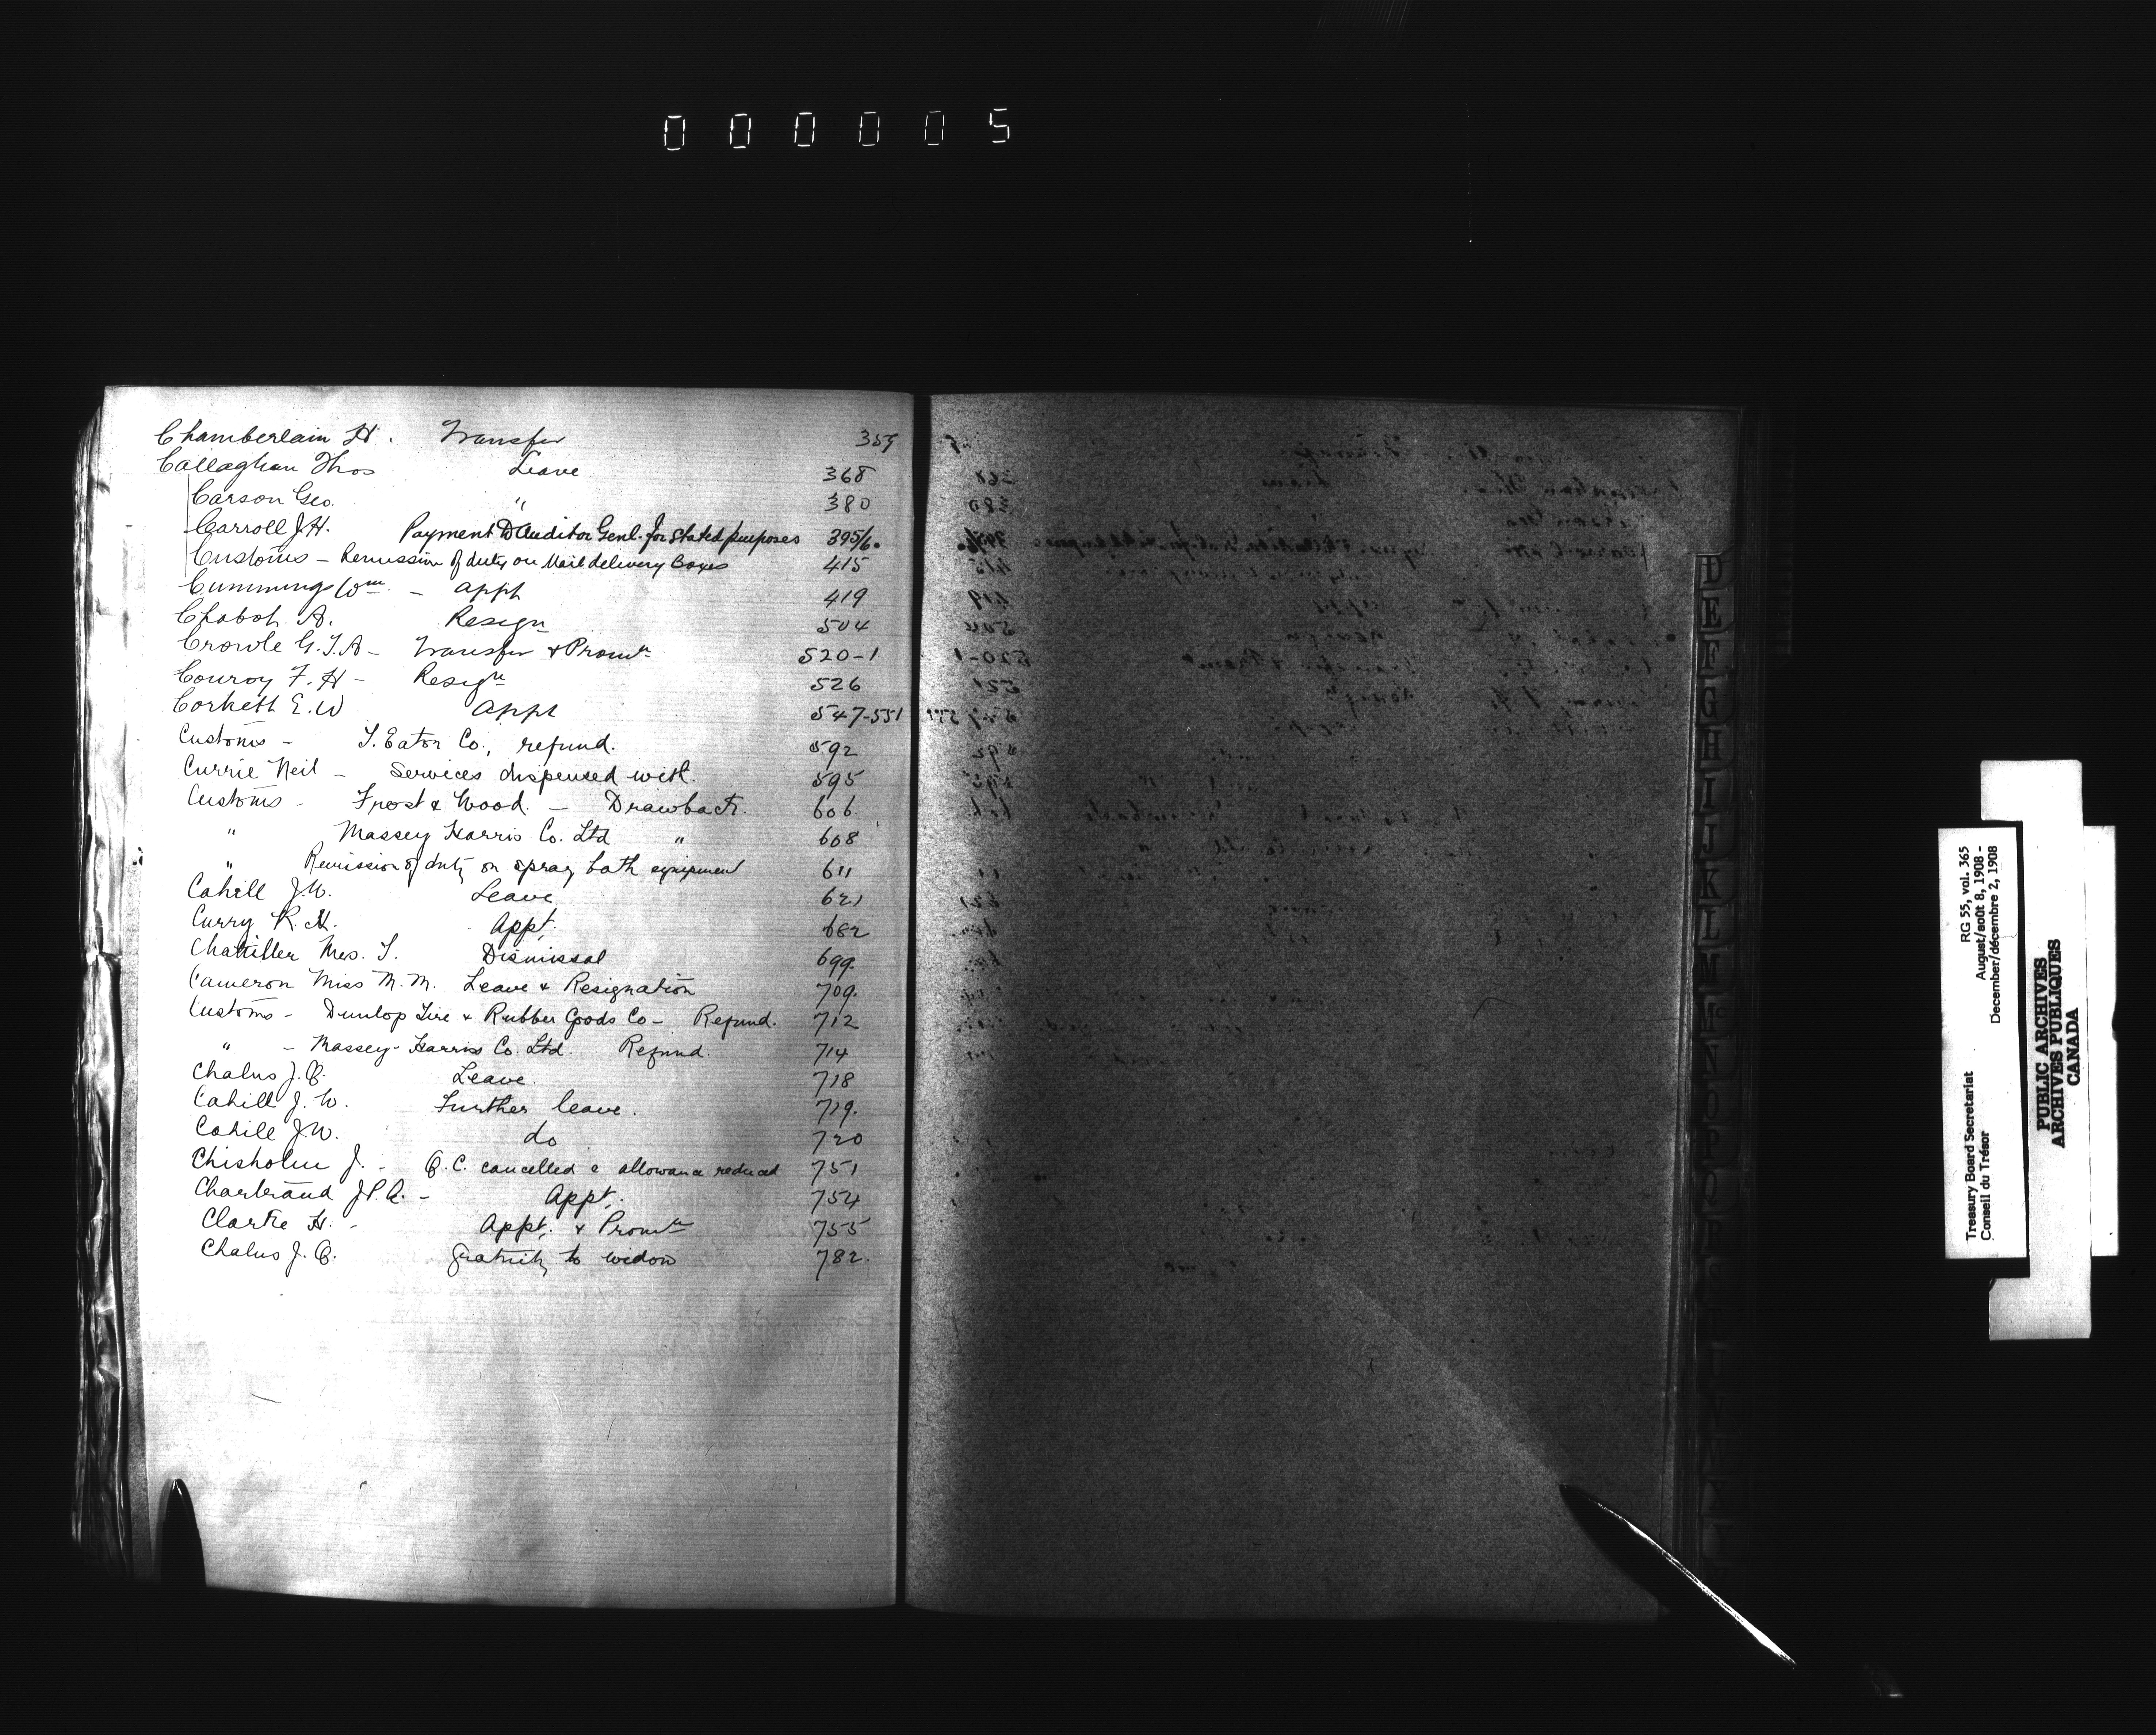 000005
Chamberlain H. Transfer 359
Callaghan Thos Leave 368
Carson Geo. " 380
Carroll J.H. Payment to Auditor Genl. for Stated purposes 395/6.
Customs - Remission of duty on Mail delivery Boxes 415
Cummings Wm - Appt 419
Chabot A. Resign 504
Crowle G.T.A - Transfer & Promn 520-1
Conroy F.H - Resign 526
Corkett E.W Appt 547-551
Customs - T. Eaton Co., refund. 592
Currie Neil - Services dispensed with. 595
Customs - Frost & Wood. - Drawback. 606
" Massey Harris Co. Ltd " 608
" Remission of duty on spray bath equipment 611
Cahill J.W. Leave 621
Curry R.H. Appt. 682
Mrs. T. Dismissal 699.
Cameron Miss M.M. Leave & Resignation 709.
Customs - Dunlop Tire & Rubber Goods Co - Refund. 712
" - Massey-Harris Co. Ltd. Refund. 714
Chalus J.B. Leave. 718
Cahill J.W. Further leave. 719.
Cahill J.W. do 720
Chisholm J. - O.C. cancelled & allowance reduced 751
Chartrand J.P.A. - Appt. 754
Clarke H. - Appt. & Promn 755
Chalus J.B. Gratuity to widow 782.
D
E
F
G
H
I
J
K
L
M
Mc
N
O
P
Q
R
S
T
Treasury Board Secretariat RG 55, vol. 365
Conseil du Trésor August/août 8, 1908 -
December/décembre 2, 1908
PUBLIC ARCHIVES
ARCHIVES PUBLIQUES
CANADA